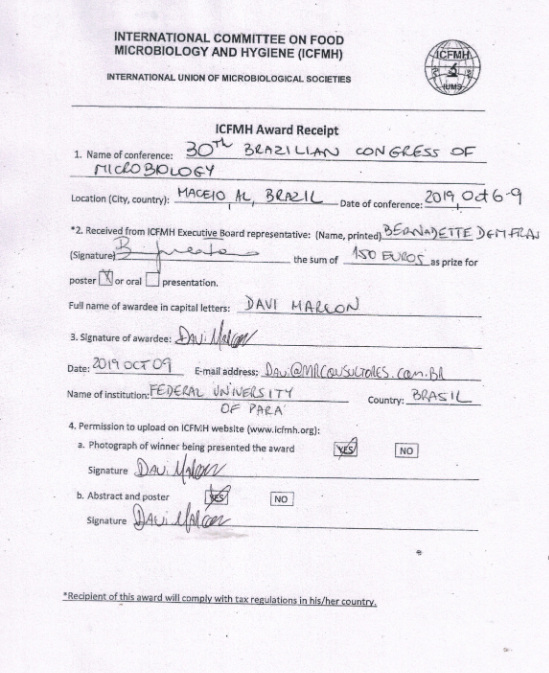 INTERNATIONAL COMMITTEE ON FOOD
MICROBIOLOGY AND HYGIENE (ICFMH)
INTERNATIONAL UNION OF MICROBIOLOGICAL SOCIETIES
ICFMH
IUMS
ICFMH Award Receipt
1. Name of conference: 30TH BRAZILIAN CONGRESS OF
MICROBIOLOGY
Location (City, country): MACEIO AL, BRAZIL Date of conference: 2019, Oct 6-9
*2. Received from ICFMH Executive Board representative: (Name, printed) BERNADETTE
(Signature) the sum of 150 EUROS as prize for
poster X or oral presentation.
Full name of awardee in capital letters: DAVI MARCON
3. Signature of awardee: Davi Marcon
Date: 2019 OCT 09 E-mail address: Davi@MRCONSULTORES.com.BR
Name of institution: FEDERAL UNIVERSITY
OF PARÁ Country: BRASIL
4. Permission to upload on ICFMH website (www.icfmh.org):
a. Photograph of winner being presented the award YES NO
Signature Davi Marcon
b. Abstract and poster YES NO
Signature Davi Marcon
*Recipient of this award will comply with tax regulations in his/her country.